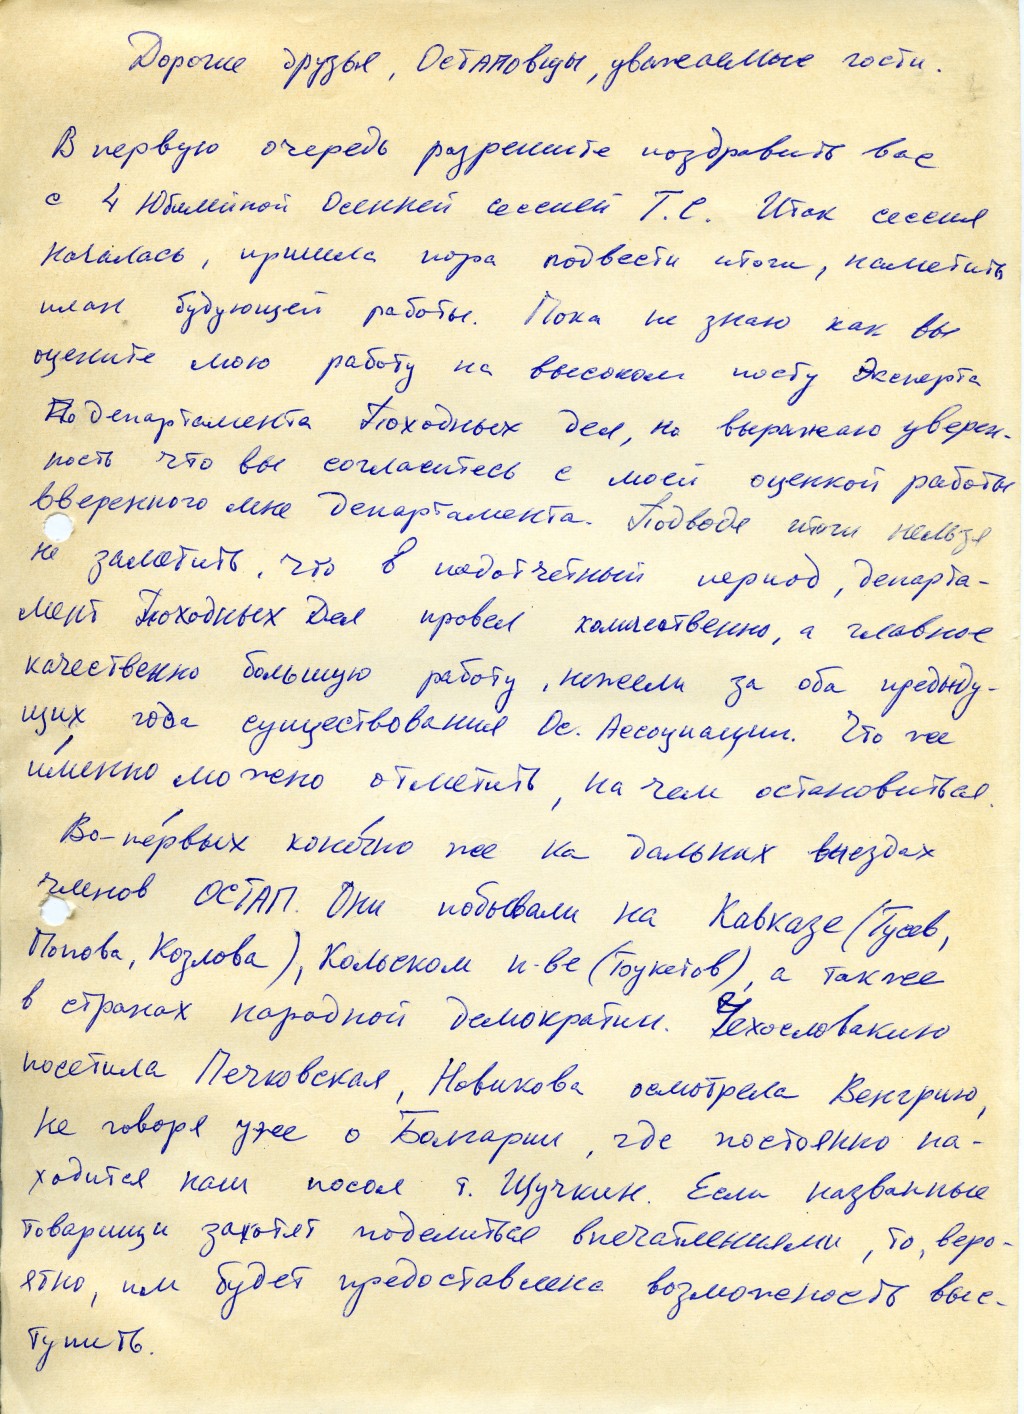 Дорогие друзья, Остаповцы, уважаемые гости.
В первую очередь разрешите поздравить вас
с 4 Юбилейной Осенней сессией Г.С. Итак сессия
началась, пришла пора подвести итоги, наметить
план будующей работы. Пока не знаю как вы
оцените мою работу на высоком посту Эксперта
Департамента Походных дел, но выражаю уверен-
ность что вы согласитесь с моей оценкой работы
вверенного мне Департамента. Подводя итоги нельзя
не заметить, что в подотчетный период, департа-
мент Походных Дел провел количественно, а главное
качественно большую работу, нежели за оба предыду-
щих года существования Ос. Ассоциации. Что же
именно можно отметить, на чем остановиться.
Во-первых конечно же на дальних выездах
членов ОСТАП. Они побывали на Кавказе (Гусев,
Попова, Козлова), Кольском п-ве (Букетов), а также
в странах народной демократии. Чехословакию
посетила Печковская, Новикова осмотрела Венгрию,
не говоря уже о Болгарии, где постоянно на-
ходится наш посол т. Щучкин. Если названные
товарищи захотят поделиться впечатлениями, то, веро-
ятно, им будет предоставлена возможность выс-
тупить.